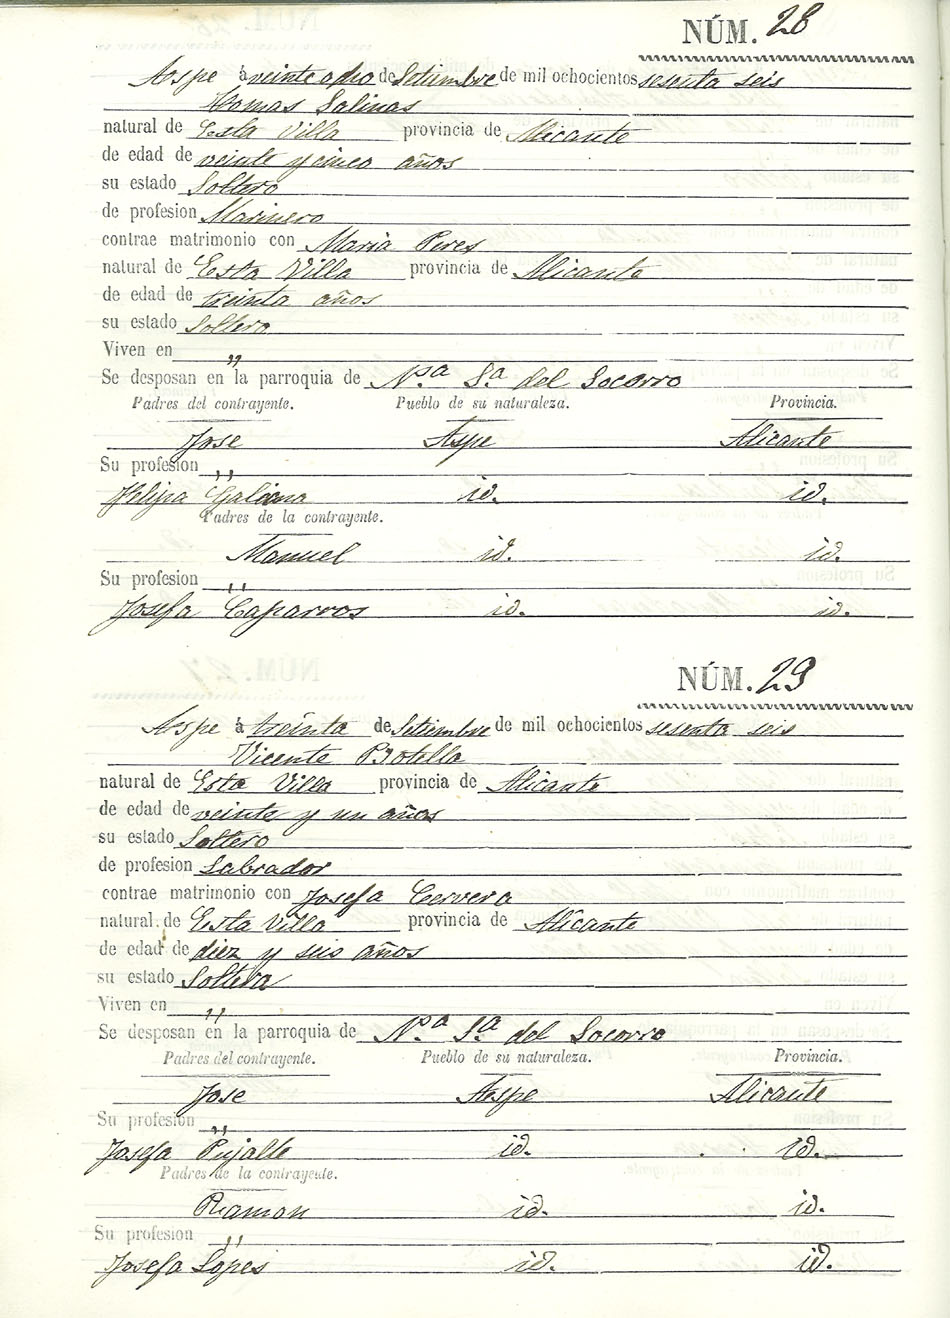 NÚM. 28
Aspe á veinte ocho de Setiembre de mil ochocientos sesenta seis
Tomas Salinas
natural de Esta Villa provincia de Alicante
de edad de veinte y cinco años
su estado Soltero
de profesion Marinero
contrae matrimonio con Maria Peres
natural de Esta Villa provincia de Alicante
de edad de treinta años
su estado Soltera
Viven en „
Se desposan en la parroquia de Nª Sª del Socorro
Padres del contrayente. Pueblo de su naturaleza. Provincia.
Jose Aspe Alicante
Su profesion „
Felipa Galiana id. id.
Padres de la contrayente.
Manuel id. id.
Su profesion „
Josefa Caparros id. id.
NÚM. 29
Aspe á treinta de Setiembre de mil ochocientos sesenta seis
Vicente Botella
natural de Esta Villa provincia de Alicante
de edad de veinte y un años
su estado Soltero
de profesion Labrador
contrae matrimonio con Josefa Cervera
natural de Esta Villa provincia de Alicante
de edad de diez y seis años
su estado Soltera
Viven en „
Se desposan en la parroquia de Nª Sª del Socorro
Padres del contrayente. Pueblo de su naturaleza. Provincia.
Jose Aspe Alicante
Su profesion „
Josefa Pujalte id. id.
Padres de la contrayente.
Ramon id. id.
Su profesion „
Josefa Lopes id. id.